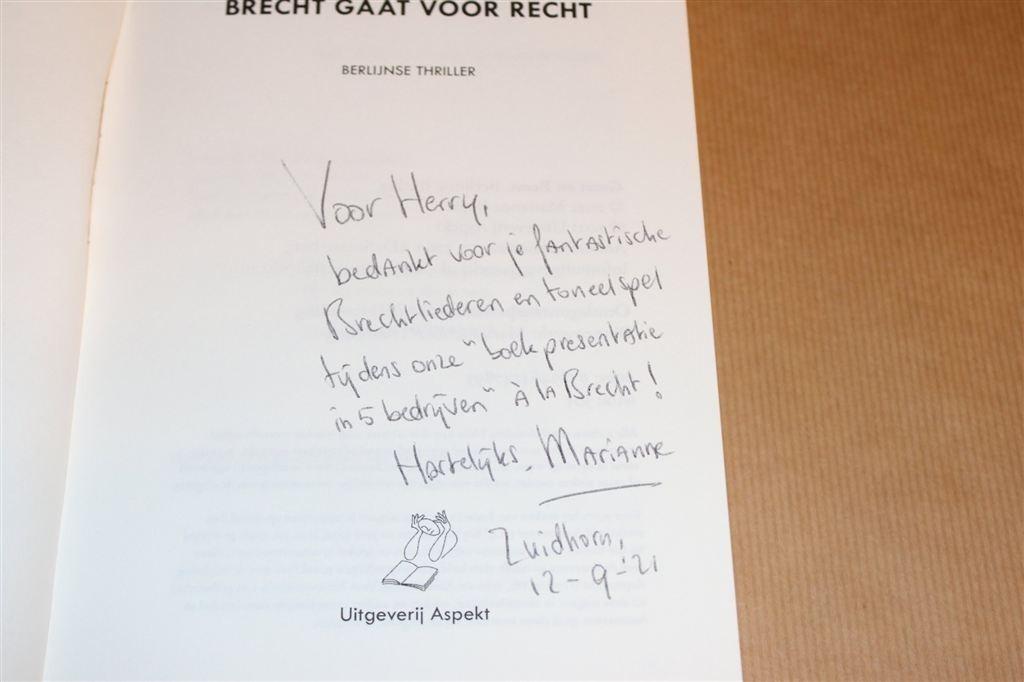 BRECHT GAAT VOOR RECHT
BERLIJNSE THRILLER
Voor Herry,
bedankt voor je fantastische
Brechtliederen en toneelspel
tijdens onze "boekpresentatie
in 5 bedrijven" à la Brecht!
Hartelijks, Marianne
Zuidhorn,
12-9-'21
Uitgeverij Aspekt